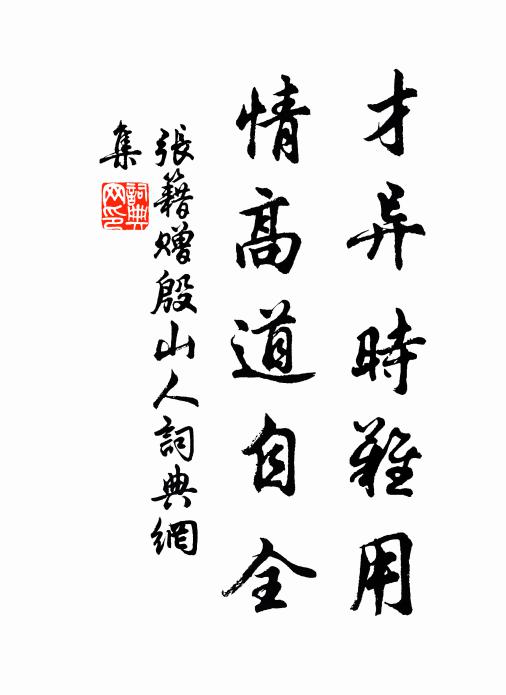 才异時難用
情高道自全
張籍贈殷山人詞典網
集
詞典
网印